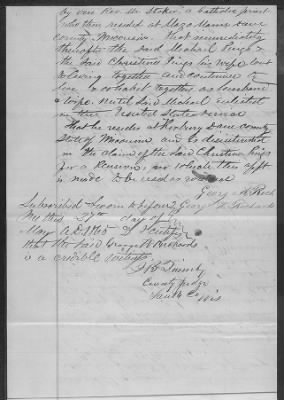 by one Rev. Mr. Stoker a Catholic priest
who then resided at Mazo Manie Dane
county Wisconsin That immediately
thereafter the said Michael &
the said Christina his wife went
to living together and continued to
live & cohabit together as husband
& wife until said Michael enlisted
in the United States
That he resides at Roxbury Dane county
State of Wisconsin and is disinterested
in the claim of the said Christina
for a Pension, in whose behalf
is made to be used as
George W Rich
Subscribed & Sworn to before George W Richards
Me this 27th day of
May A.D. 1865 & I certify
that the said George W Richards
is a credible witness
County Judge
Sauk Co Wis